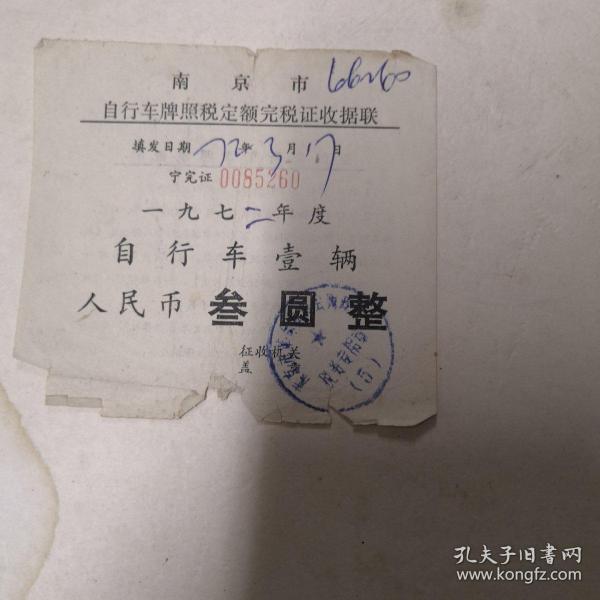 南京市 66260
自行车牌照税定额完税证收据联
填发日期 72年3月17日
宁完证 0085260
一九七二年度
自行车壹辆
人民币 叁圆整
征收机关
盖
税务专用章
(5)
孔夫子旧书网
www.kongfz.com